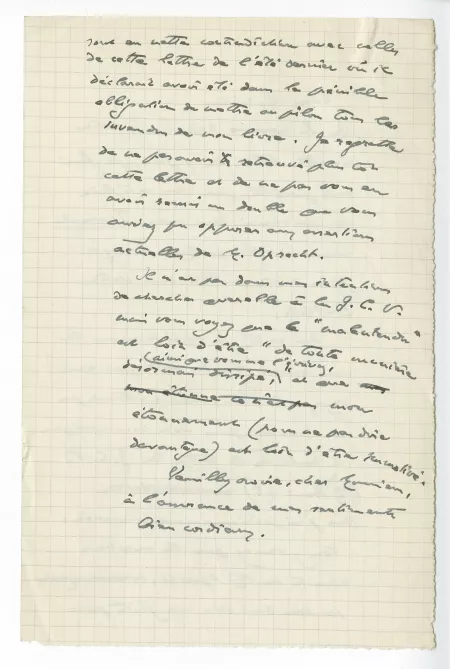 sont en nette contradiction avec celles
de cette lettre de l'été dernier où il
déclarait avoir été dans la pénible
obligation de mettre au pilon tous les
invendus de mon livre. Je regrette
de ne pas avoir retrouvé plus tôt
cette lettre et de ne pas vous en
avoir remis un double que vous
auriez pu opposer aux assertions
actuelles de M. Oprecht.
Il n'est pas dans mes intentions
de chercher querelle à la J.C.V.
mais vous voyez que le "malentendu"
est loin d'être "de toute manière
(ainsi que vous me l'écrivez)
désormais dissipé", et que
mon étonnement ce n'est pas mon
étonnement (pour ne pas dire
davantage) est loin d'être
Veuillez croire, cher Monsieur,
à l'assurance de mes sentiments
bien cordiaux.